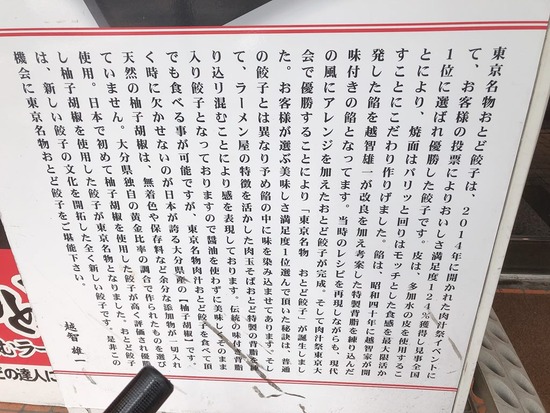 東京名物おとど餃子は、2014年に開かれた肉汁祭イベントに
て、お客様の投票によりおいしさ満足度124%獲得し見事全国
1位に選ばれ優勝した餃子です。皮は、多加水の皮を使用するこ
とにより、焼面はパリッと回りはモッチとした食感を最大限活か
すことにこだわり作りげました。餡は、昭和四十年に越智家が開
発した餡を越智雄一が改良を加え考案した特製背脂を練り込んだ
味付きの餡となってます。当時のレシピを再現しながらも、現代
の風にアレンジを加えたおとど餃子が完成。そして肉汁祭東京大
会で優勝することにより「東京名物 おとど餃子」が誕生しまし
た。お客様が選ぶ美味しさ満足度1位選んで頂いた秘訣は、普通
の餃子とは異なり予め餡の中に味を染み込ませてあります。そし
て、ラーメン屋の特徴を活かした肉玉そばおとど特製の背脂を練
り込り混むことにより感を表現しております。伝統の味付き背脂
入り餃子となっておりますので醤油を使わずに美味しくそのまま
でも食べる事が可能ですが、東京名物肉汁おとど餃子を食べて頂
く時に欠かせないのが日本が誇る大分県の【柚子胡椒】です。
天然の柚子胡椒は、無着色や保存料など余分な添加物が一切入れ
ていません。大分県独自の黄金比率の調合で作られたものを選び
使用。日本で初めて柚子胡椒を使用した餃子が高く評価され優勝
し柚子胡椒を使用した餃子が東京名物となりました。おとど餃子
は、新しい餃子の文化を開拓した全く新しい餃子です。是非この
機会に東京名物おとど餃子をご堪能下さい。
越智 雄一
むラー
の達人に